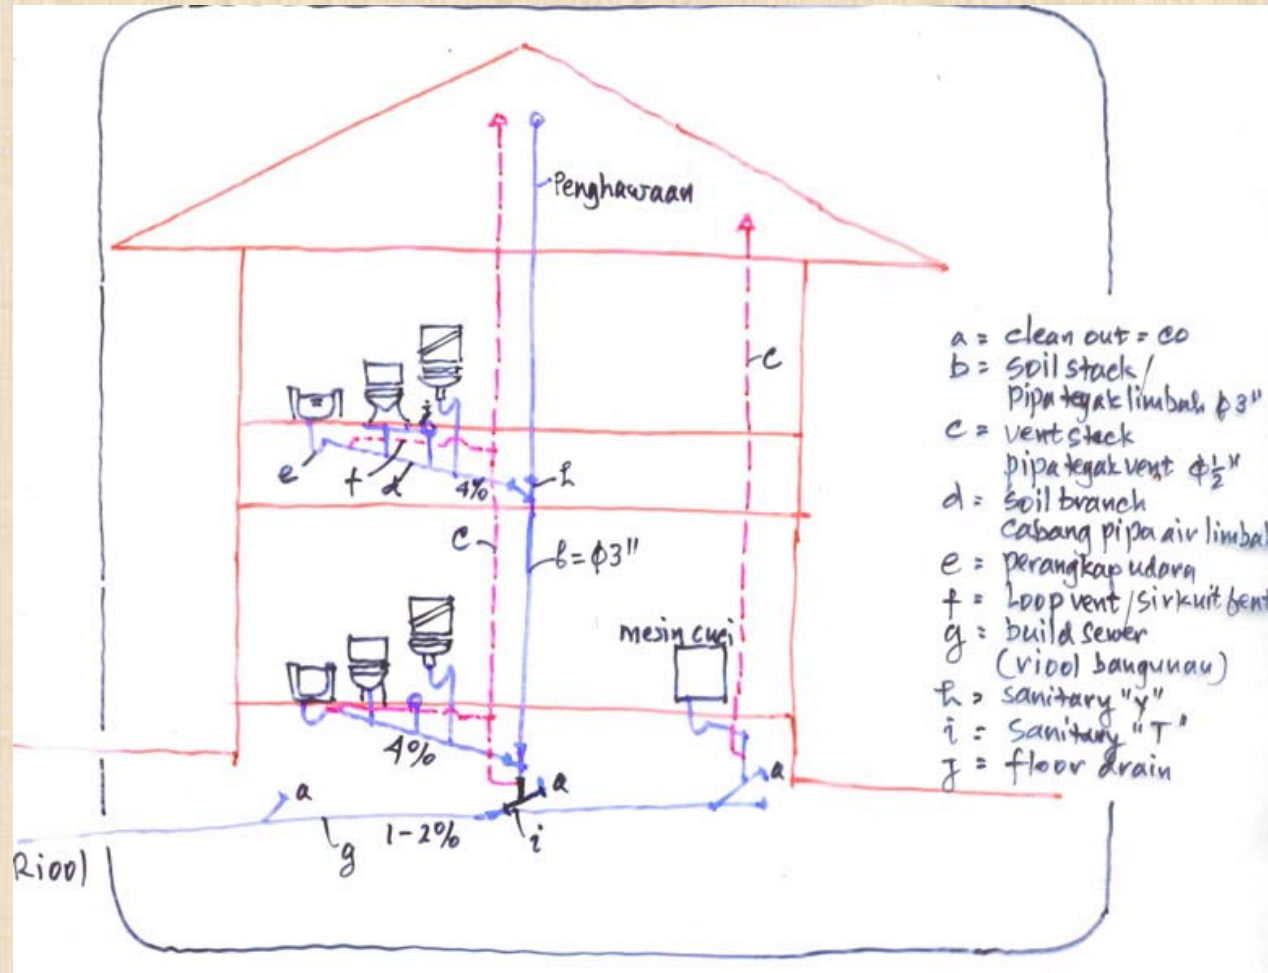 Penghawaan
c
j
e
f
d
4%
h
c
b=ϕ3"
mesin cuci
4%
a
a
a
g
1-2%
i
Riool
a = clean out = co
b = soil stack/
pipa tegak limbah ϕ3"
c = vent stack
pipa tegak vent ϕ½"
d = soil branch
cabang pipa air limbah
e = perangkap udara
f = Loop vent/sirkuit
g = build sewer
(riool bangunan)
h = sanitary "y"
i = sanitary "T"
j = floor drain